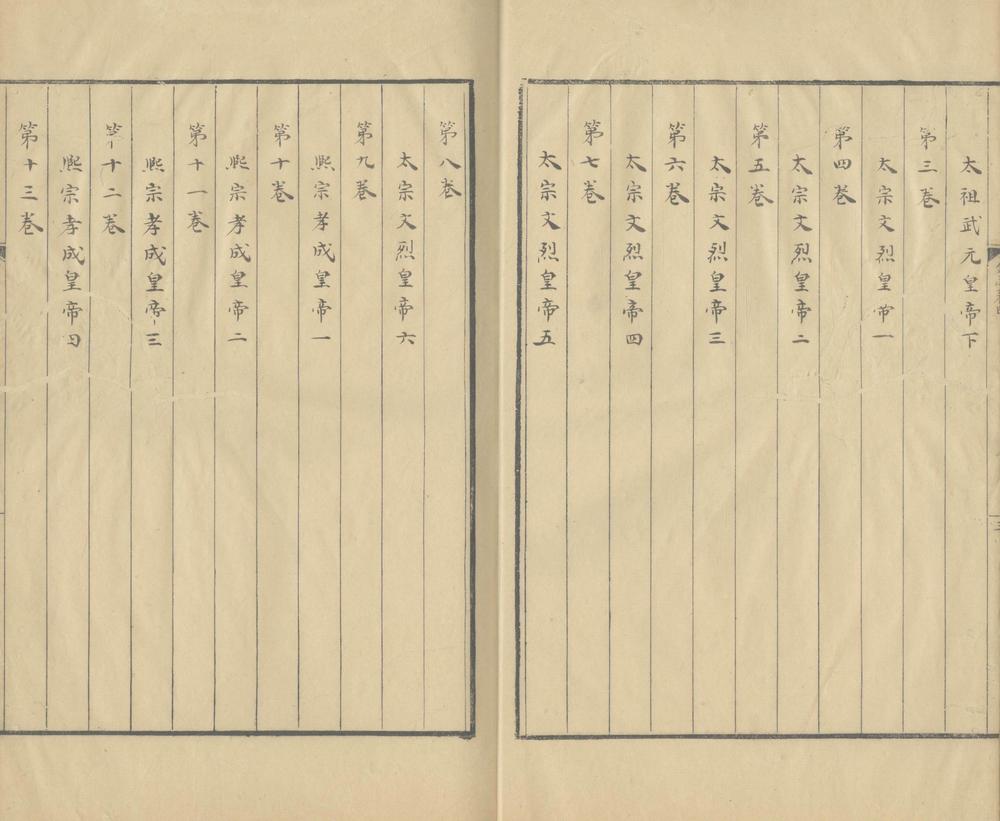 太祖武元皇帝下
第三卷
太宗文烈皇帝一
第四卷
太宗文烈皇帝二
第五卷
太宗文烈皇帝三
第六卷
太宗文烈皇帝四
第七卷
太宗文烈皇帝五
第八卷
太宗文烈皇帝六
第九卷
熈宗孝成皇帝一
第十卷
熈宗孝成皇帝二
第十一卷
熈宗孝成皇帝三
第十二卷
熈宗孝成皇帝四
第十三卷